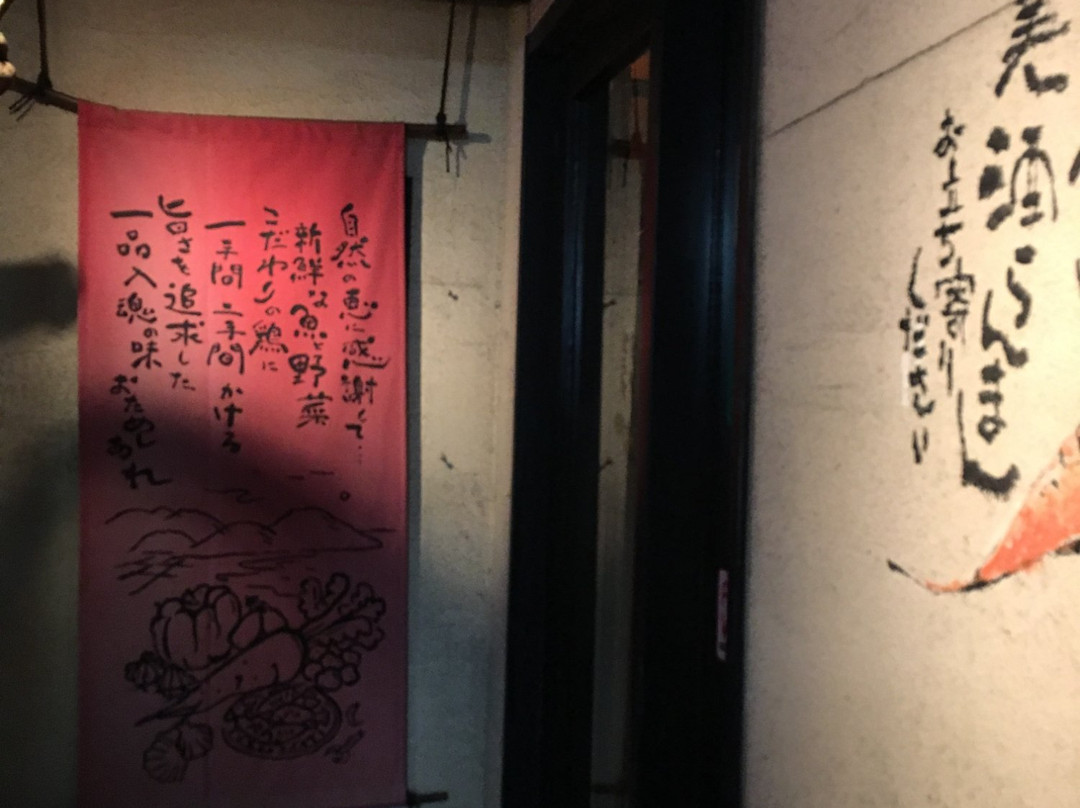 自然の恵に感謝して…
新鮮な魚と野菜
こだわりの鶏に
一手間二手間かける
旨さを追求した
一品入魂の味
おためしあれ
美酒らんまし
お立ち寄り
ください